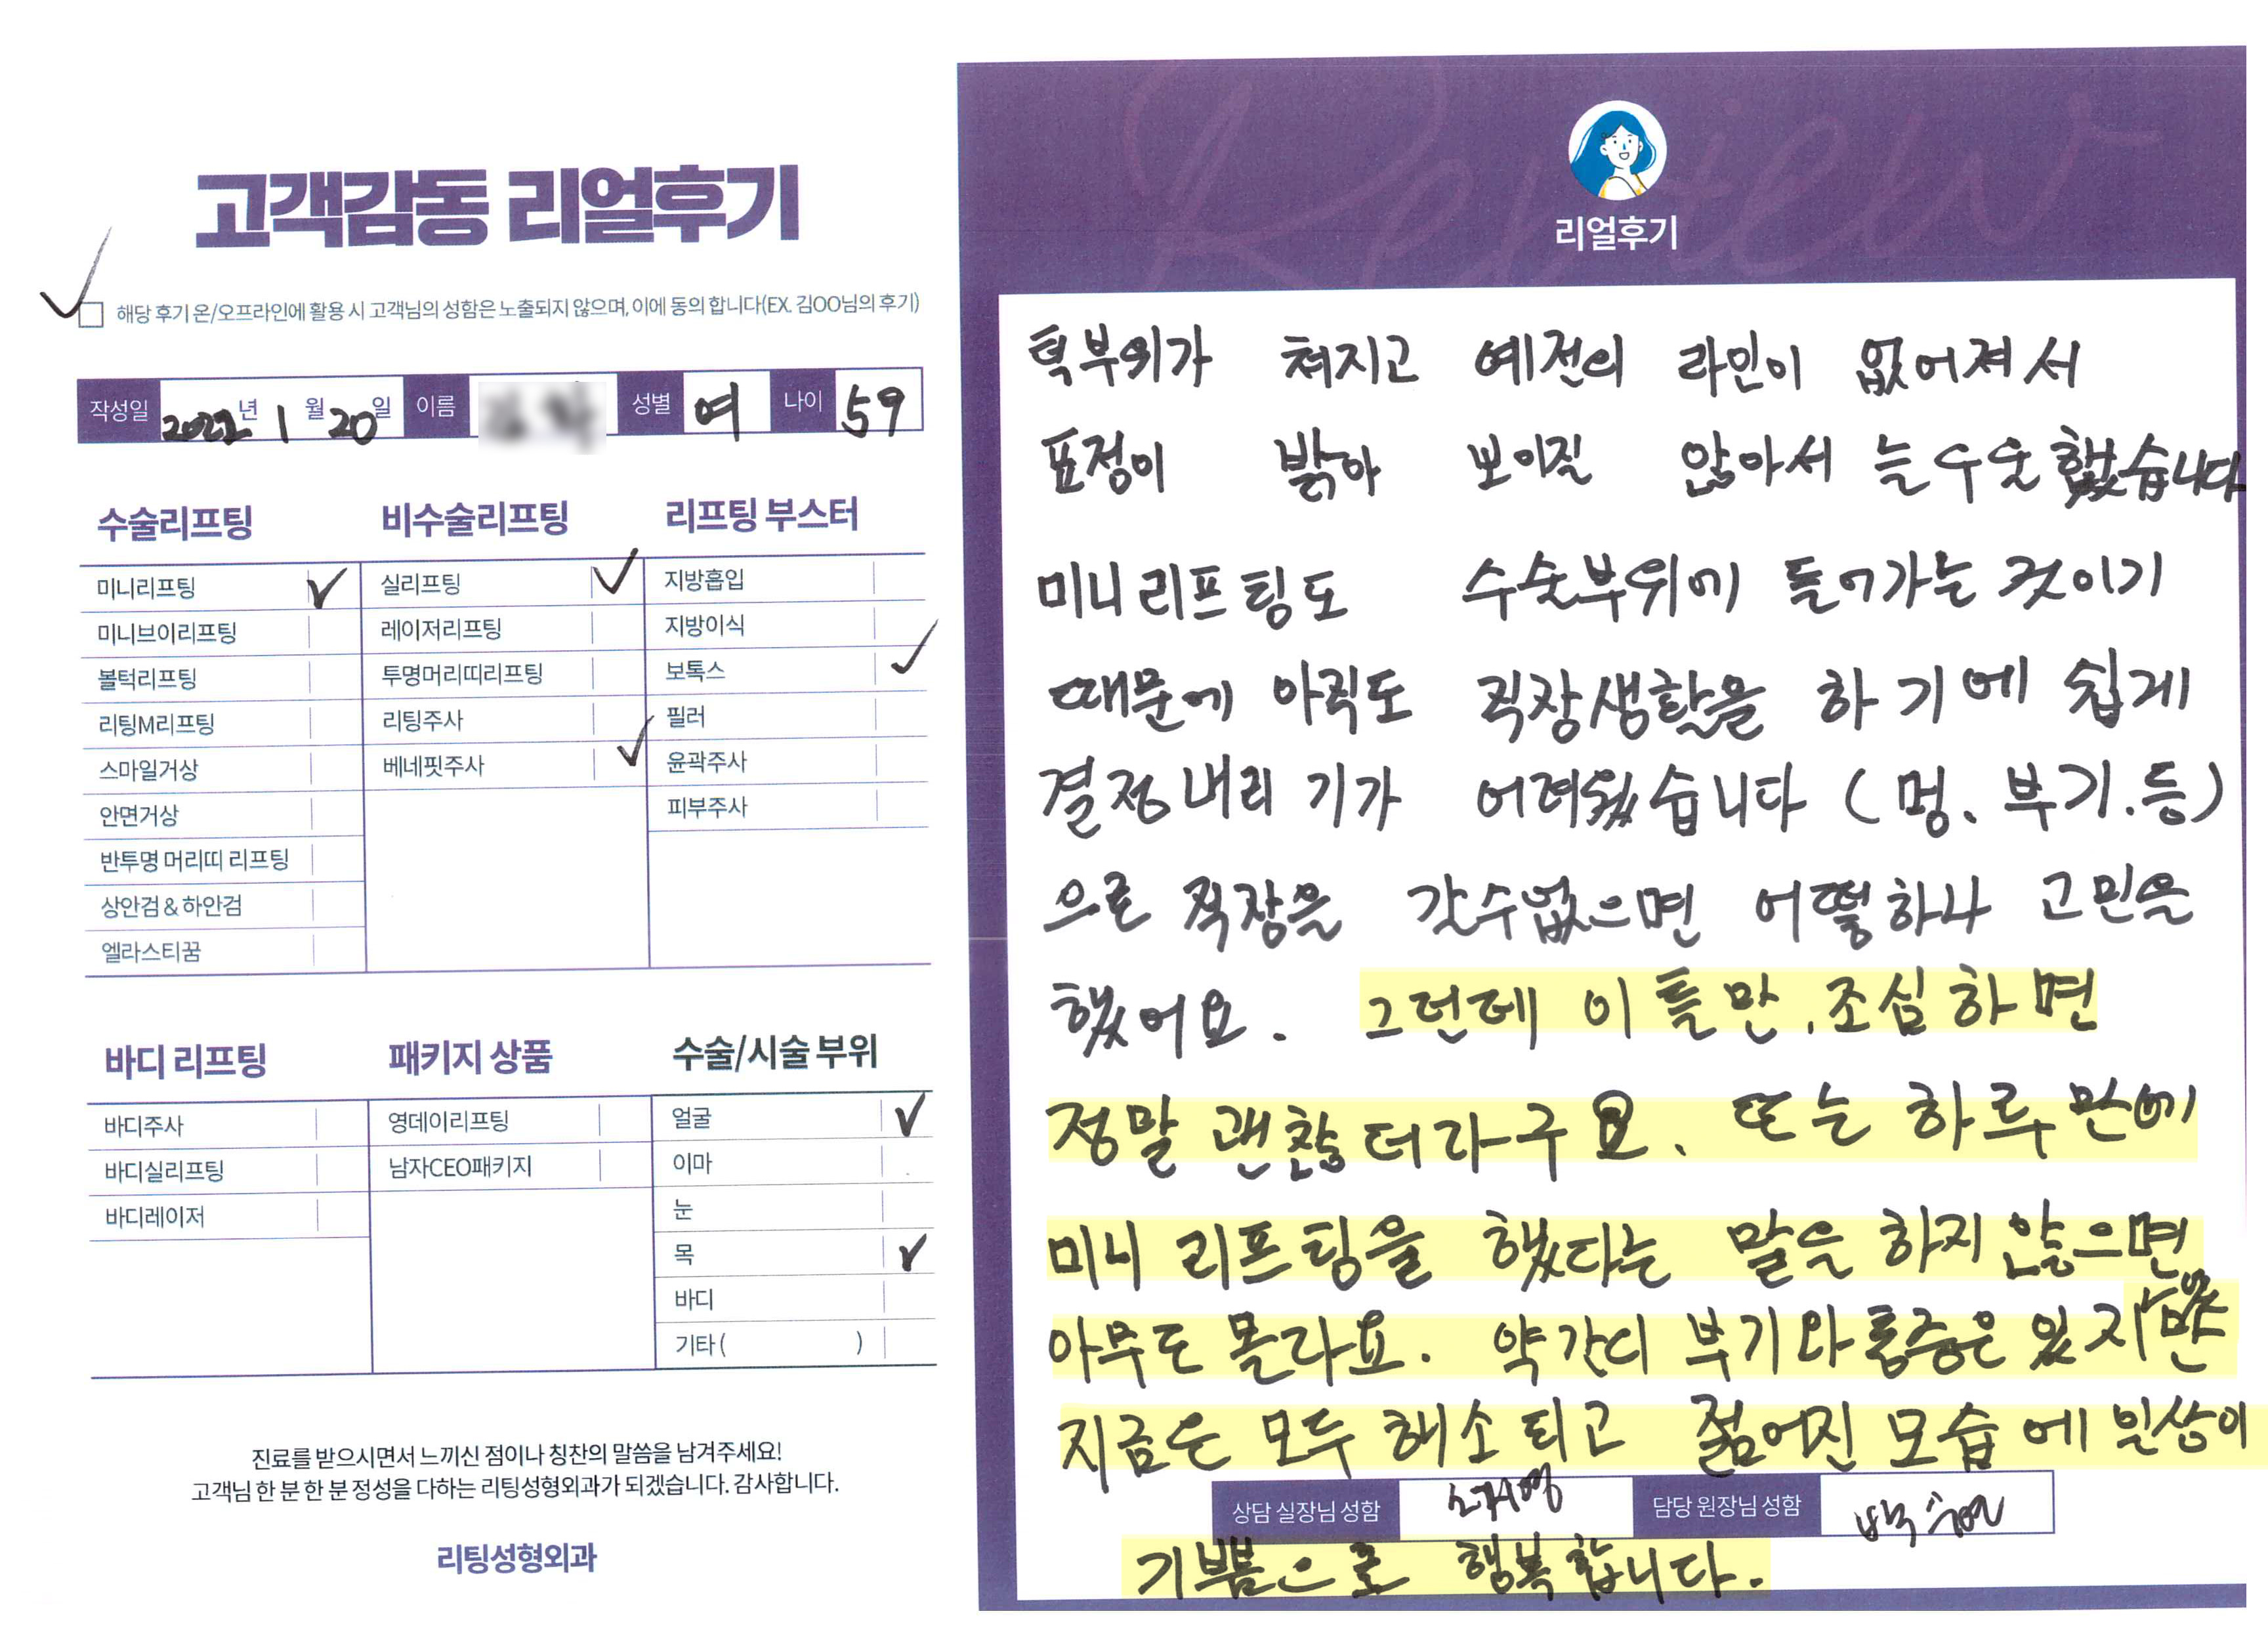 고객감동 리얼후기
해당 후기 온/오프라인에 활용 시 고객님의 성함은 노출되지 않으며, 이에 동의 합니다(EX. 김OO님의 후기)
작성일 2022년 1월 20일 이름 성별 여 나이 59
수술리프팅
미니리프팅
미니브이리프팅
볼턱리프팅
리팅M리프팅
스마일거상
안면거상
반투명 머리띠 리프팅
상안검 & 하안검
엘라스티꿈
비수술리프팅
실리프팅
레이저리프팅
투명머리띠리프팅
리팅주사
베네핏주사
리프팅 부스터
지방흡입
지방이식
보톡스
필러
윤곽주사
피부주사
바디 리프팅
바디주사
바디실리프팅
바디레이저
패키지 상품
영데이리프팅
남자CEO패키지
수술/시술 부위
얼굴
이마
눈
목
바디
기타 ( )
진료를 받으시면서 느끼신 점이나 칭찬의 말씀을 남겨주세요!
고객님 한 분 한 분 정성을 다하는 리팅성형외과가 되겠습니다. 감사합니다.
리팅성형외과
Review
리얼후기
턱부위가 쳐지고 예전의 라인이 없어져서
표정이 밝아 보이질 않아서 늘 우울했습니다
미니리프팅도 수술부위에 들어가는 것이기
때문에 아직도 직장생활을 하기에 쉽게
결정내리기가 어려웠습니다 (멍、부기.등)
으로 직장을 갈수없으면 어떻하나 고민을
했어요. 그런데 이틀만.조심하면
정말 괜찮더라구요. 또는 하루만에
미니 리프팅을 했다는 말을 하지않으면
아무도 몰라요. 약간의 부기와 통증은 있지만
지금은 모두 해소되고 젊어진 모습에 일상이
상담 실장님 성함 담당 원장님 성함
기쁨으로 행복합니다.